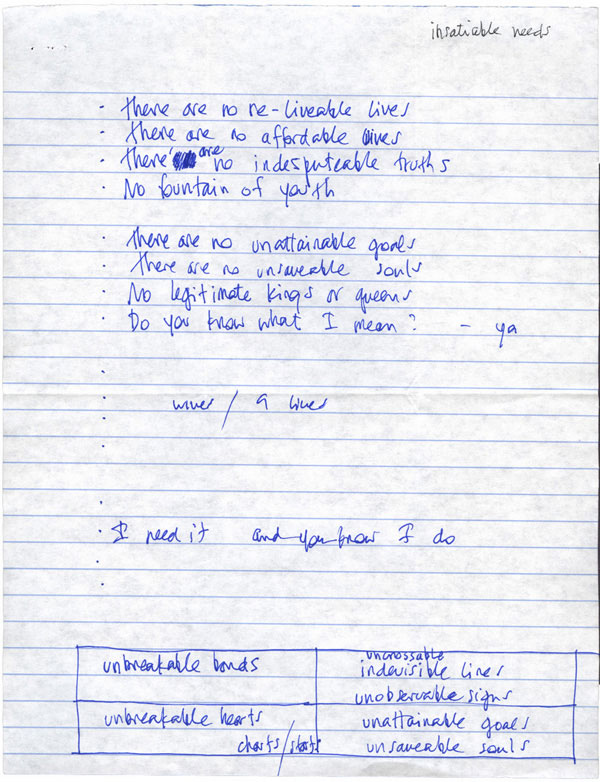 insatiable needs
· there are no re-liveable lives
· There are no affordable wives
· there are no indesputeable truths
· No fountain of youth
· there are no unattainable goals
· There are no unsaveable souls
· No legitimate kings or queens
· Do you know what I mean? - ya
wives / 9 lives
· I need it and you know I do
unbreakable bonds
uncrossable
indevisible lines
unobservable signs
unbreakable hearts
charts /
unattainable goals
unsaveable souls